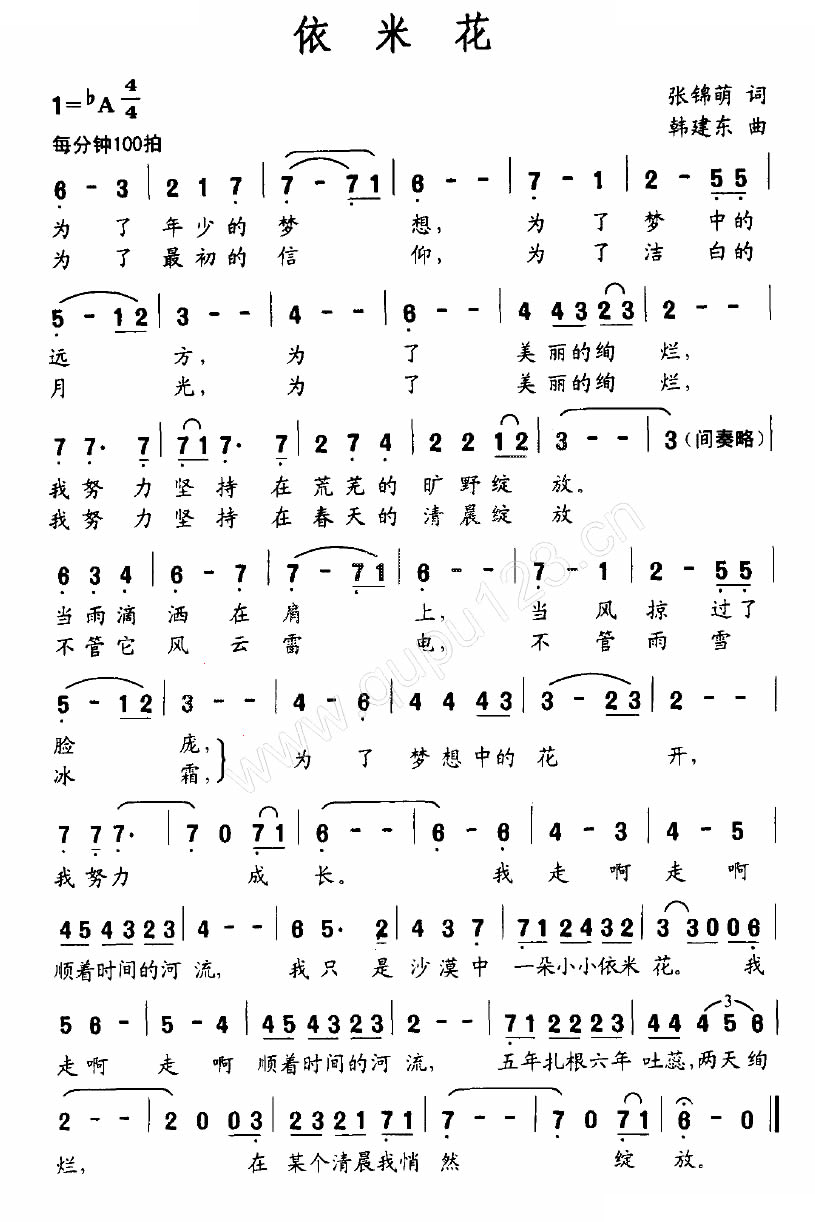 依米花
1=♭A 4/4
张锦萌 词
每分钟100拍
韩建东 曲
6 - 3 | 2 1 7 | 7 - 7 1 | 6 - - | 7 - 1 | 2 - 5 5 |
为了年少的梦想,为了梦中的
为了最初的信仰,为了洁白的
5 - 1 2 | 3 - - | 4 - - | 6 - - | 4 4 3 2 3 | 2 - - |
远方,为了美丽的绚烂,
月光,为了美丽的绚烂,
7 7· 7 | 7 1 7· 7 | 2 7 4 | 2 2 1 2 | 3 - - | 3 (间奏略) |
我努力坚持在荒芜的旷野绽放。
我努力坚持在春天的清晨绽放
6 3 4 | 6 - 7 | 7 - 7 1 | 6 - - | 7 - 1 | 2 - 5 5 |
当雨滴洒在肩上,当风掠过了
不管它风云雷电,不管雨雪
5 - 1 2 | 3 - - | 4 - 6 | 4 4 4 3 | 3 - 2 3 | 2 - - |
脸庞,
冰霜,} 为了梦想中的花开,
7 7 7· | 7 0 7 1 | 6 - - | 6 - 6 | 4 - 3 | 4 - 5 |
我努力成长。我走啊走啊
4 5 4 3 2 3 | 4 - - | 6 5· 2 | 4 3 7 | 7 1 2 4 3 2 | 3 3 0 0 6 |
顺着时间的河流,我只是沙漠中一朵小小依米花。我
5 6 - | 5 - 4 | 4 5 4 3 2 3 | 2 - - | 7 1 2 2 2 3 | 4 4 4 5 6 |
3
走啊走啊顺着时间的河流,五年扎根六年吐蕊,两天绚
2 - - | 2 0 0 3 | 2 3 2 1 7 1 | 7 - - | 7 0 7 1 | 6 - 0 ‖
烂,在某个清晨我悄然绽放。
www.qupu123.cn